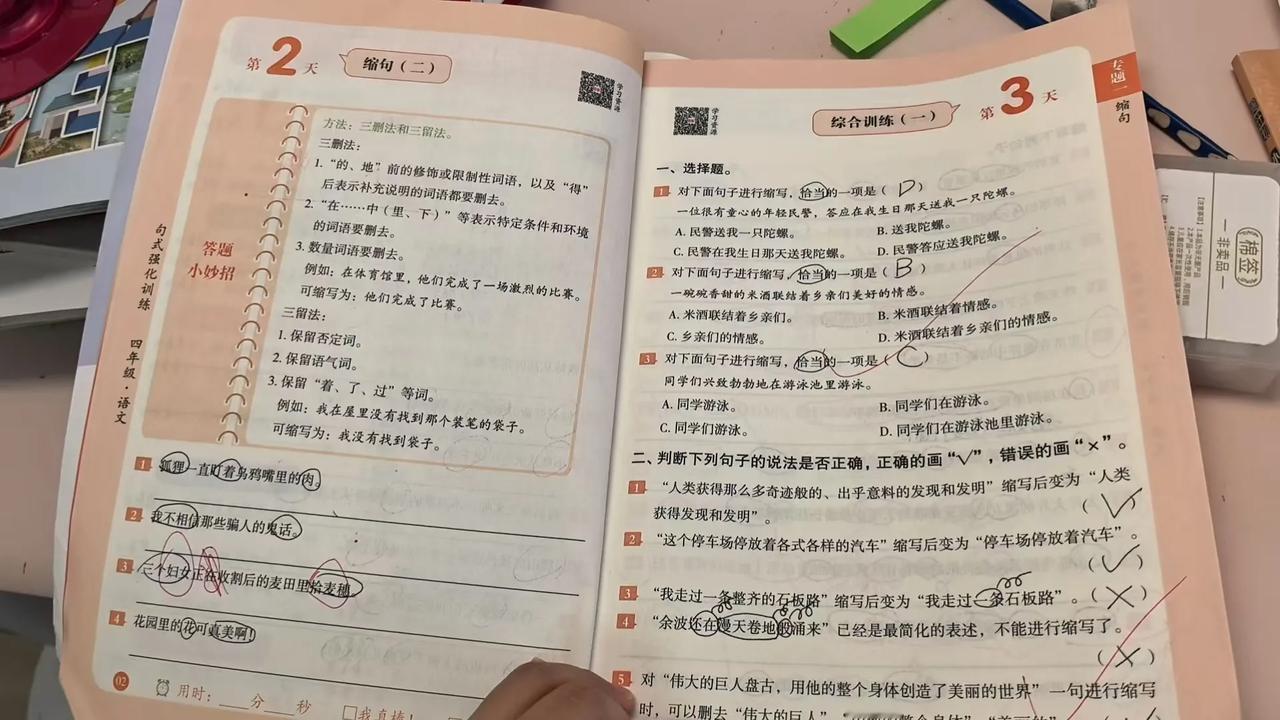 第2天
缩句(二)
学习资源
答题
小妙招
方法:三删法和三留法。
三删法:
1.“的、地”前的修饰或限制性词语,以及“得”
后表示补充说明的词语都要删去。
2.“在……中(里、下)”等表示特定条件和环境
的词语要删去。
3.数量词语要删去。
例如:在体育馆里,他们完成了一场激烈的比赛。
可缩写为:他们完成了比赛。
三留法:
1.保留否定词。
2.保留语气词。
3.保留“着、了、过”等词。
例如:我在屋里没有找到那个装笔的袋子。
可缩写为:我没有找到袋子。
句式强化训练 四年级·语文
1 狐狸一直盯着乌鸦嘴里的肉。
2 我不相信那些骗人的鬼话。
3 三个妇女正在收割后的麦田里拾麦穗。
4 花园里的花可真美啊!
02 用时:____分____秒 □我真棒!
学习资源
综合训练(一)
第3天
专题一 缩句
一、选择题。
1 对下面句子进行缩写,恰当的一项是( D )
一位很有童心的年轻民警,答应在我生日那天送我一只陀螺。
A.民警送我一只陀螺。 B.送我陀螺。
C.民警在我生日那天送我陀螺。 D.民警答应送我陀螺。
2 对下面句子进行缩写,恰当的一项是( B )
一碗碗香甜的米酒联结着乡亲们美好的情感。
A.米酒联结着乡亲们。 B.米酒联结着情感。
C.乡亲们的情感。 D.米酒联结着乡亲们的情感。
3 对下面句子进行缩写,恰当的一项是( C )
同学们兴致勃勃地在游泳池里游泳。
A.同学游泳。 B.同学们在游泳。
C.同学们游泳。 D.同学们在游泳池里游泳。
二、判断下列句子的说法是否正确,正确的画“√”,错误的画“×”。
1 “人类获得那么多奇迹般的、出乎意料的发现和发明”缩写后变为“人类
获得发现和发明”。 ( √ )
2 “这个停车场停放着各式各样的汽车”缩写后变为“停车场停放着汽车”。
( √ )
3 “我走过一条整齐的石板路”缩写后变为“我走过一条石板路”。( × )
4 “余波还在漫天卷地般涌来”已经是最简化的表述,不能进行缩写了。
( × )
5 对“伟大的巨人盘古,用他的整个身体创造了美丽的世界”一句进行缩写
时,可以删去“伟大的巨人”
棉签
非卖品